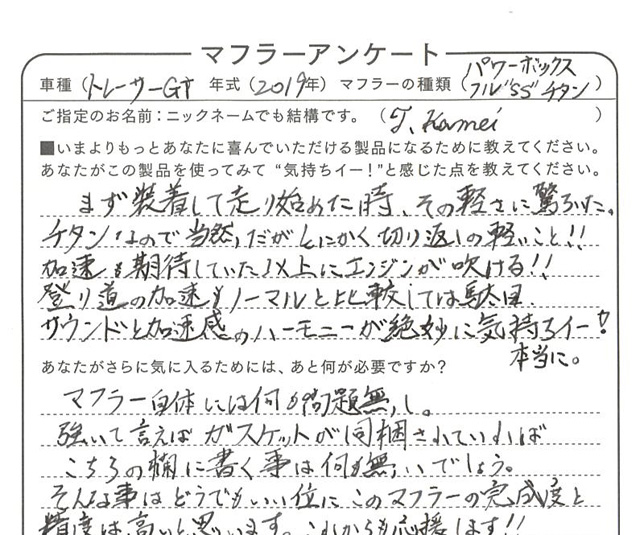 マフラーアンケート
車種（トレーサーGT 年式（2019年）マフラーの種類（パワーボックス フル"SS"チタン）
ご指定のお名前：ニックネームでも結構です。（T. Kamei）
■いまよりもっとあなたに喜んでいただける製品になるために教えてください。
あなたがこの製品を使ってみて"気持ちイー！"と感じた点を教えてください。
まず装着して走り始めた時、その軽さに驚いた。
チタンなので当然だがとにかく切り返しの軽いこと!!
加速も期待していた以上にエンジンが吹ける!!
登り道の加速もノーマルと比較しては駄目.
サウンドと加速感のハーモニーが絶妙に気持ちイー!
本当に。
あなたがさらに気に入るためには、あと何が必要ですか？
マフラー自体には何も問題無し。
強いて言えばガスケットが同梱されていれば
こちらの欄に書く事は何も無いでしょう。
そんな事はどうでもいい位にこのマフラーの完成度と
精度は高いと思います。これからも応援します!!